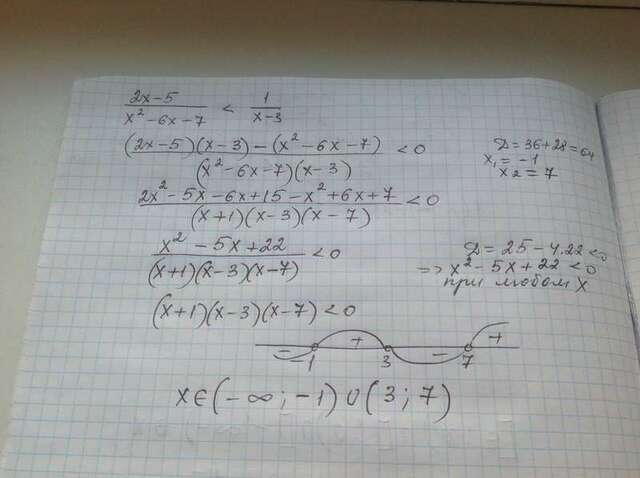 2x-5 / x² -6x-7 < 1 / x-3
(2x-5)(x-3)-(x²-6x-7) / (x²-6x-7)(x-3) < 0
D=36+28=64
x₁=-1
x2=7
2x²-5x-6x+15-x²+6x+7 / (x+1)(x-3)(x-7) < 0
x² -5x+22 / (x+1)(x-3)(x-7) < 0
D=25-4.22<0
=> x²-5x+22<0
при любом x
(x+1)(x-3)(x-7)<0
- + - +
-1 3 7
x∈(-∞;-1)∪(3;7)